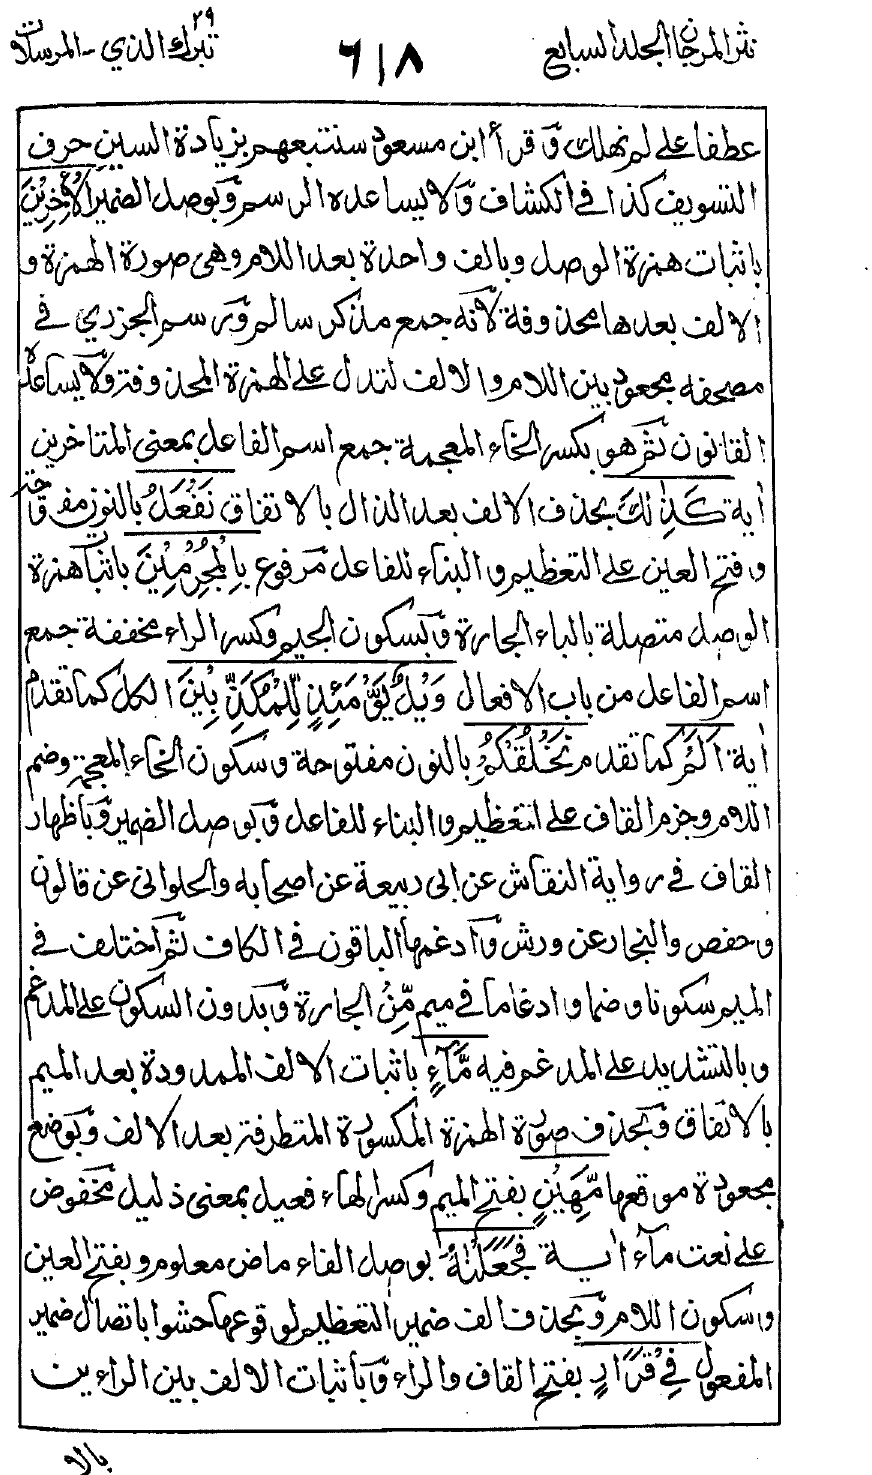 نثر المرجان الجلد السابع
٦١٨
تبرك الذي ٢٩ - المرسلات
عطفا على لم نهلك وَّقرأ ابن مسعود سنتبعهم بزيادة السين حرف
التسويف كذا في الكشاف وَّلا يساعده الرسم وَّبوصل الضمير الْاٰخِرِيْنَ
باثبات همزة الوصل وبالف واحدة بعد اللام وهى صورة الهمزة و
الالف بعدها محذوفة لاَنّه جمع مذكر سالم وَّرسم الجزري في
مصحفه مجعودة بين اللام والالف لتدل على الهمزة المحذوفة وَلَا يساعده
القانون ثم هو بكسر الخاء المعجمة جمع اسم الفاعل بمعنى المتاخرين
اٰية كَذٰلِكَ بحذف الالف بعد الذال بالاتفاق نَفْعَلُ بالنون مفتوحة
وفتح العين على التعظيم والبناء للفاعل مرفوع بِالْمُجْرِمِيْنَ باثبات همزة
الوصل متصلة بالباء الجارة وَّبسكون الجيم وكسر الراء مخففة جمع
اسم الفاعل من باب الافعال وَيْلٌ يَّوْمَئِذٍ لِّلْمُكَذِّبِيْنَ الكل كما تقدم
اٰية اَلَمْ كما تقدم نَخْلُقْكُّمْ بالنون مفتوحة وسكون الخاء المعجمة وضم
اللام وجزم القاف على التعظيم والبناء للفاعل وَّبوصل الضمير وَّبأظهار
القاف في رواية النقاش عن ابى ربيعة عن اصحابه والحلوانى عن قالون
وحفص والبخار عن ورش وَّادغمها الباقون في الكاف ثم اختلف في
الميم سكونا وضما وادغاما في ميم مِّنْ الجارة وَّبدون السكون على المدغم
وبالتشديد على المدغم فيه مَّآءٍ باثبات الالف الممدودة بعد الميم
بالاتفاق وَّبحذف صورة الهمزة المكسورة المتطرفة بعد الالف وَّبوضع
مجعودة موقعها مَّهِيْنٍ بفتح الميم وكسر الهاء فعيل بمعنى ذليل مخفوض
على نعت مآء اٰية فَجَعَلْنٰهُ بوصل الفاء ماض معلوم وبفتح العين
وسكون اللام وَّبحذف الف ضمير التعظيم لوقوعها حشوا باتصال ضمير
المفعول فِيْ قَرَارٍ بفتح القاف والراء وَّبأثبات الالف بين الراءين
بالا